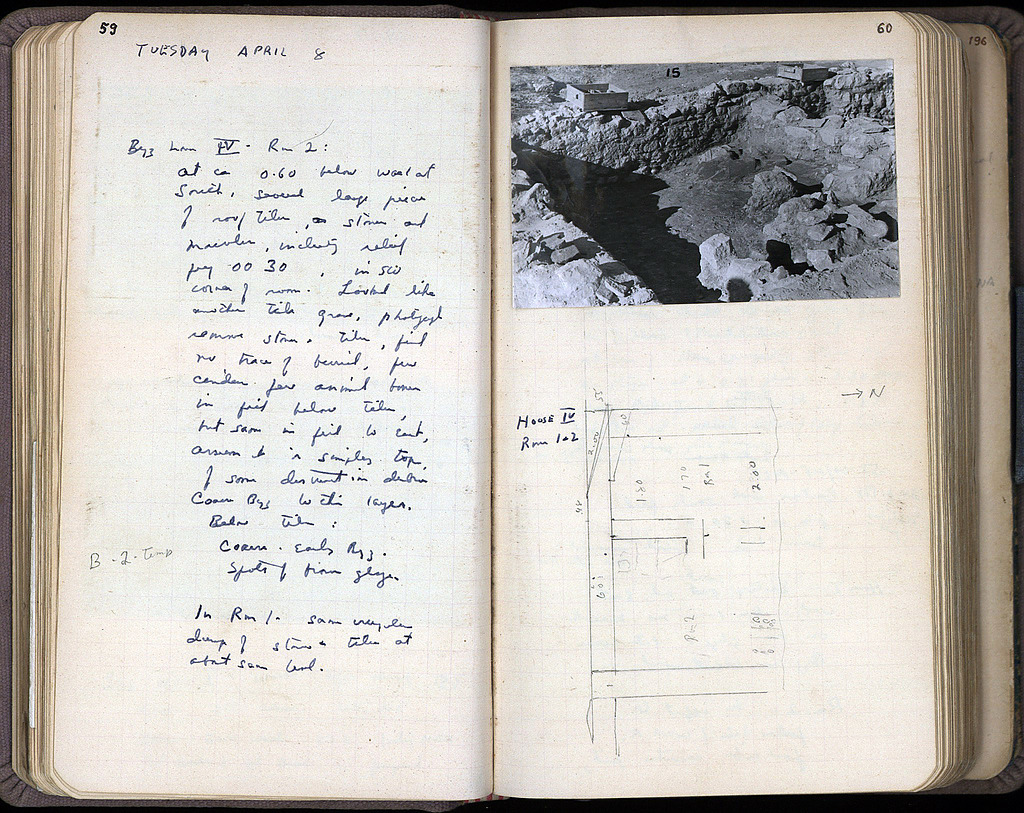 59
TUESDAY APRIL 8
Byz IV - Rm 2:
at ca 0.60 below wall at
South, several large pieces
of roof tiles, stones and
including relief
00 30, in SW
corner of room. Looked like
another tile grave, photograph
remove stones tiles, find
no trace of burial, few
few animal bones
in below tiles,
but same in to east,
is simply top
of some in debris
Coarse Byz to this layer.
Below tiles:
Coarse. Early Byz.
Spots of brown glaze.
B-2-Temp
In Rm 1- same irregular
dump of stones tiles at
about same level.
60
15
HOUSE IV
Rms 1+2
→ N
55
60
2.00
1.80
1.70
Rm 1
2.00
Rm 2
196